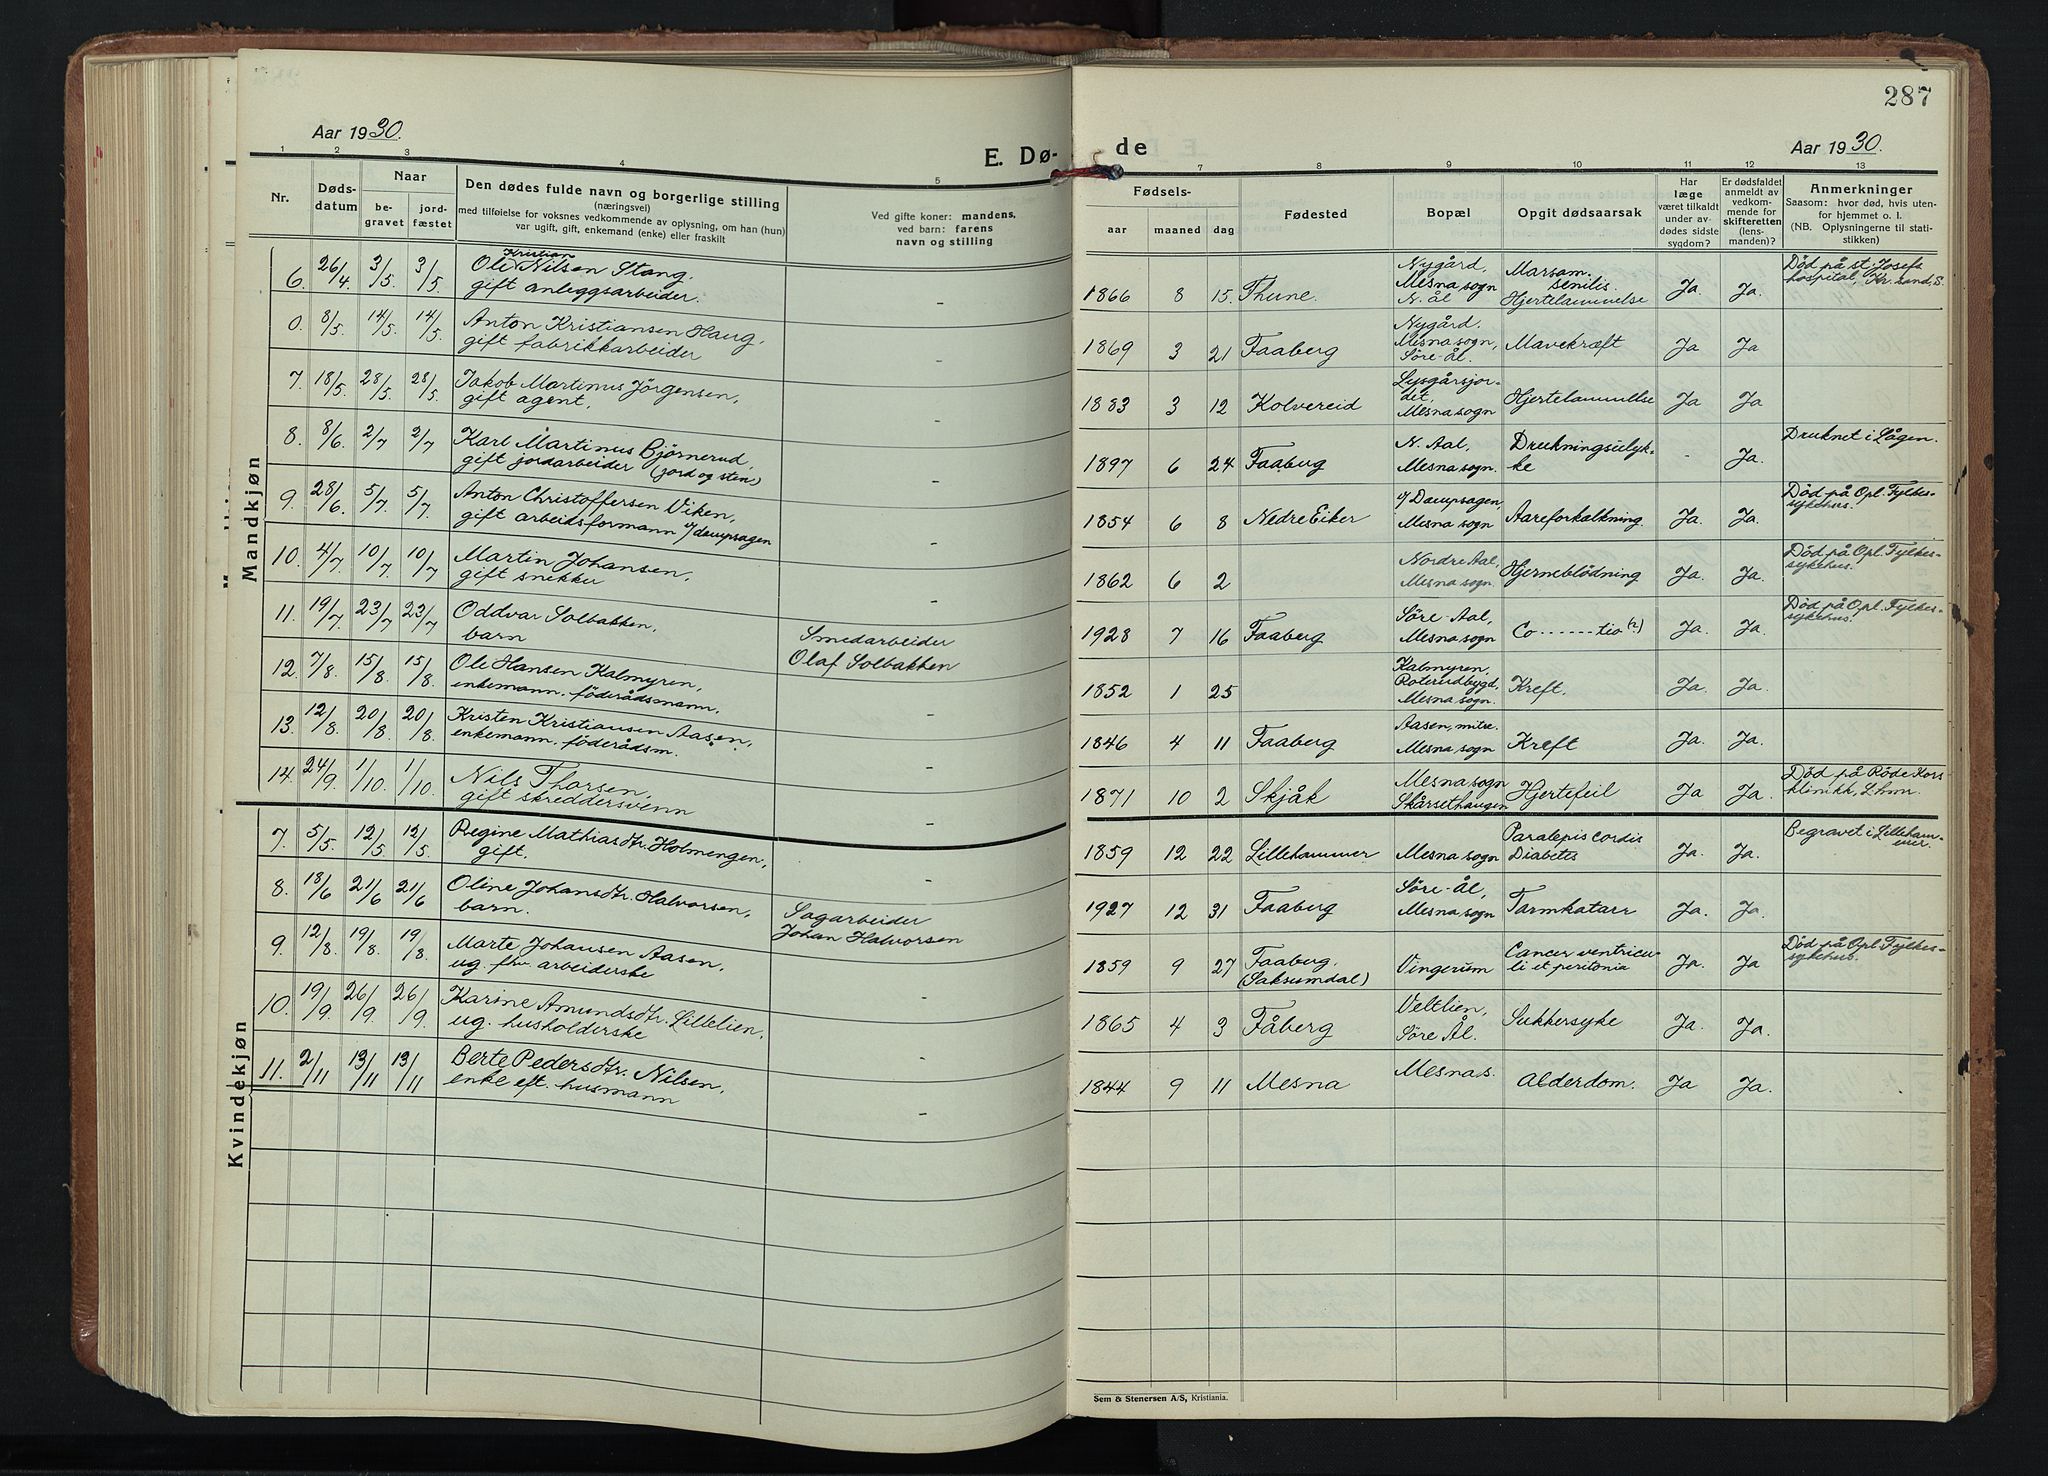 287
Aar 1930.
E. Dø-
de
Aar 1930.
1 2 3 4 5 7 8 9 10 11 12 13
Nr.
Døds-
datum
Naar
be-
gravet
jord-
fæstet
Den dødes fulde navn og borgerlige stilling
(næringsvei)
med tilføielse for voksnes vedkommende av oplysning, om han (hun)
var ugift, gift, enkemand (enke) eller fraskilt
Ved gifte koner: mandens,
ved barn: farens
navn og stilling
Fødsels-
aar maaned dag
Fødested
Bopæl
Opgit dødsaarsak
Har
læge
været tilkaldt
under av-
dødes sidste
sygdom?
Er dødsfaldet
anmeldt av
vedkom-
mende for
skifteretten
(lens-
manden)?
Anmerkninger
Saasom: hvor død, hvis uten-
for hjemmet o. l.
(NB. Oplysningerne til stati-
stikken)
Mandkjøn
6. 26/4 3/5. 3/5. Ole Kristian Nilsen Stang.
gift anleggsarbeider. -
1866 8 15. Thune. Nygård, Mesna sogn N. ål Marsam. senilis. Hjertelammelse Ja. Ja. Død på st. Josefs hospital, Kr. sand, S.
0. 8/5. 14/5. 14/5. Anton Kristiansen Haug,
gift fabrikkarbeider -
1869 3 21 Faaberg Nygård. Mesna sogn, Søre-ål. Mavekræft Ja Ja
7. 18/5. 28/5. 28/5. Jakob Martinus Jørgensen,
gift agent. -
1883 3 12 Kolvereid Lysgårsjor-det, Mesna sogn Hjertelammelse Ja Ja
8. 8/6. 2/7 2/7 Karl Martinus Bjørnerud,
gift jordarbeider (jord og sten) -
1897 6 24 Faaberg N. Aal, Mesna sogn. Drukningsulyk-ke - Ja. Druknet i Lågen.
9. 28/6. 5/7. 5/7. Anton Christoffersen Viken,
gift arbeidsformann v/ dampsagen -
1854 6 8 Nedre Eiker v/ Dampsagen, Mesna sogn Aareforkalkning. Ja. Ja. Død på Opl. Fylkes-sykehus.
10. 4/7. 10/7. 10/7 Martin Johansen,
gift snekker -
1862 6 2 Nordre Aal, Mesna sogn. Hjerneblødning Ja. Ja. Død på Opl. Fylkes-sykehus.
11. 19/7. 23/7 23/7 Oddvar Solbakken,
barn Smedarbeider Olaf Solbakken
1928 7 16 Faaberg Søre-Aal, Mesna sogn Co.......tio (?) Ja. Ja. Død på Opl. Fylkes-sykehus.
12. 7/8. 15/8. 15/8. Ole Hansen Kalmyren,
enkemann, føderådsmann, -
1852 1 25 Kalmyren, Roterudbygd, Mesna sogn. Kreft. Ja. Ja.
13. 12/8. 20/8. 20/8. Kristen Kristiansen Aasen,
enkemann. føderådsm. -
1846 4 11 Faaberg Aasen, mitre. Mesna sogn Kreft Ja. Ja.
14. 24/9. 1/10. 1/10. Nils Thorsen,
gift skreddersvenn -
1871 10 2 Skjåk Mesna sogn Skårsethaugen Hjertefeil Ja Ja. Død på Røde Kors klinikk, L.hmr.
Kvindekjøn
7. 5/5. 12/5. 12/5. Regine Mathiasdtr. Holmengen,
gift. -
1859 12 22 Lillehammer Mesna sogn Paralepis cordis Diabetes Ja. Ja. Begravet i Lilleham-mer.
8. 18/6 21/6 21/6 Oline Johansdtr. Halvorsen,
barn. Sagarbeider Johan Halvorsen
1927 12 31 Faaberg Søre-ål, Mesna sogn Tarmkatarr Ja. Ja.
9. 12/8. 19/8. 19/8. Marte Johansen Aasen,
ug. fhv arbeiderske -
1859 9 27 Faaberg, (Saksumdal) Vingerum Cancer ventricu-li et peritonia Ja. Ja Død på Opl. Fylkes-sykehus.
10. 19/9. 26/9 26/9 Karine Amundsdtr. Lillelien,
ug. husholderske -
1865 4 3 Fåberg Veltlien, Søre Ål. Sukkersyke Ja. Ja.
11. 2/11 13/11 13/11 Berte Pedersdtr. Nilsen,
enke eft. husmann -
1844 9 11 Mesna Mesna s. Alderdom. Ja Ja.
Sem & Stenersen A/S, Kristiania.